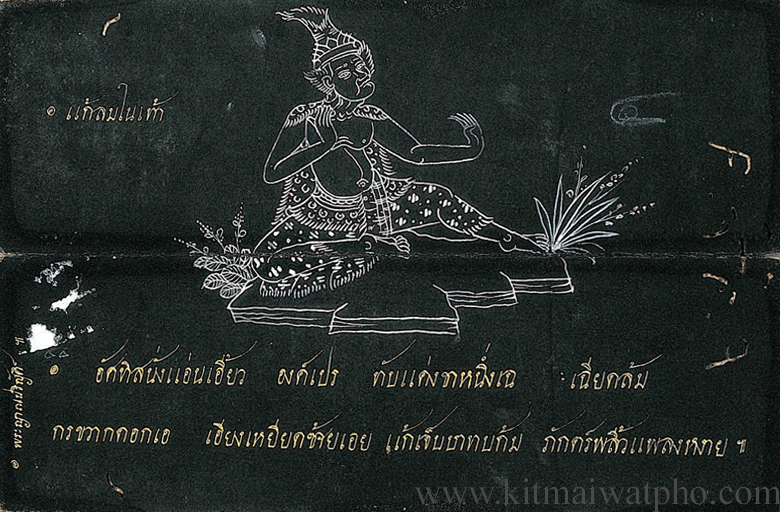 ๏ แก้ลมในเท้า
๏ อัคทิสนั่งแอ่นเอี้ยว องค์แปร ทับแค่งขาหนึ่งเฉ เฉียดล้ม
กรขวากดอกเอ เอียงเหยียดซ้ายเอย แก้เจ็บบาทบก้ม ภักตร์พลิ้วแพลงหงาย ๚
๏ พระญาณปริยัติ ๚
www.kitmaiwatpho.com